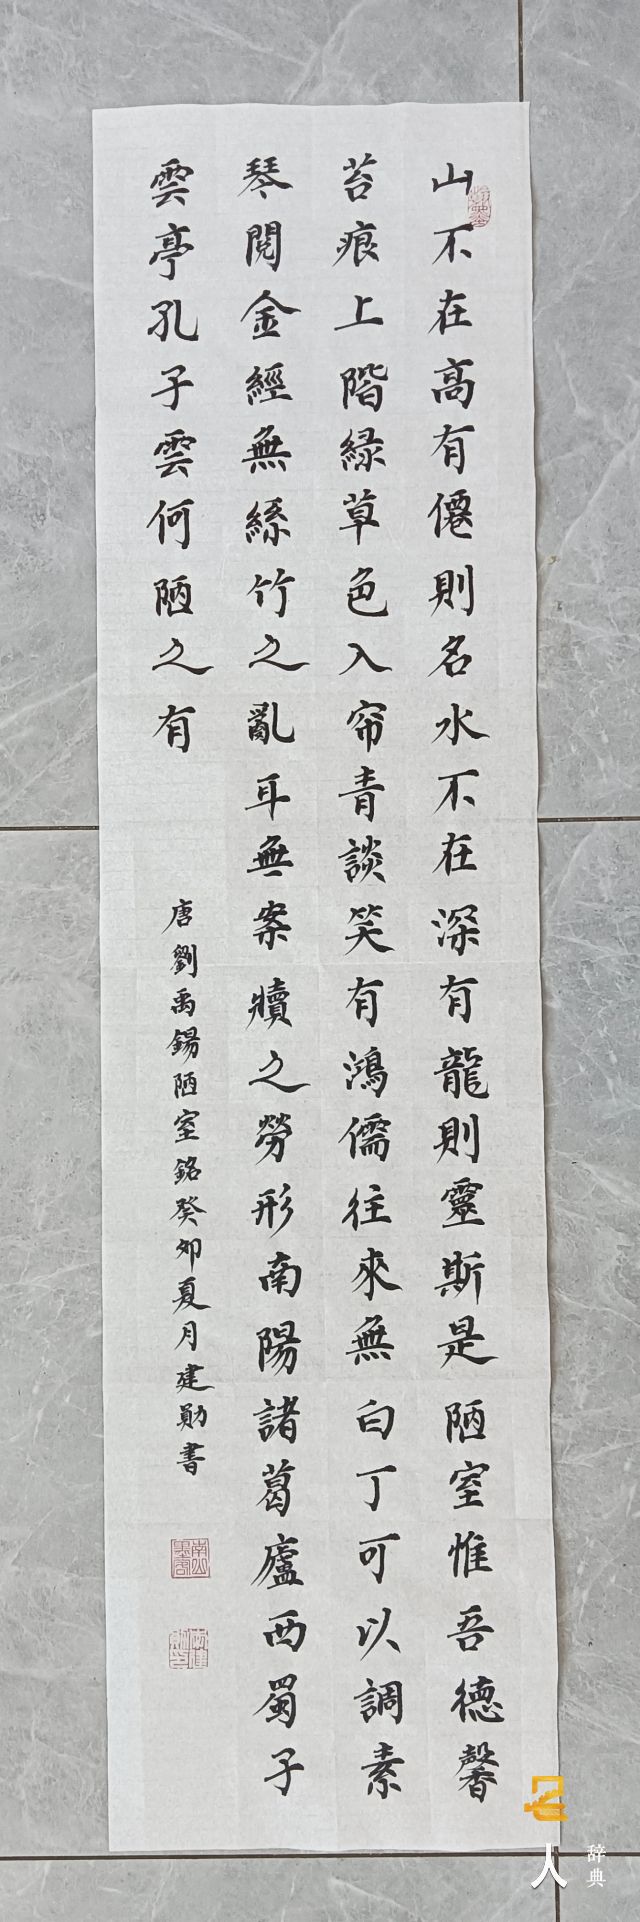 山不在高有僊則名水不在深有龍則靈斯是陋室惟吾德馨
苔痕上階緑草色入帘青談笑有鴻儒往來無白丁可以調素
琴閱金經無絲竹之亂耳無案牘之勞形南陽諸葛廬西蜀子
雲亭孔子雲何陋之有
唐劉禹錫陋室銘癸卯夏月建勛書
名人
辞典